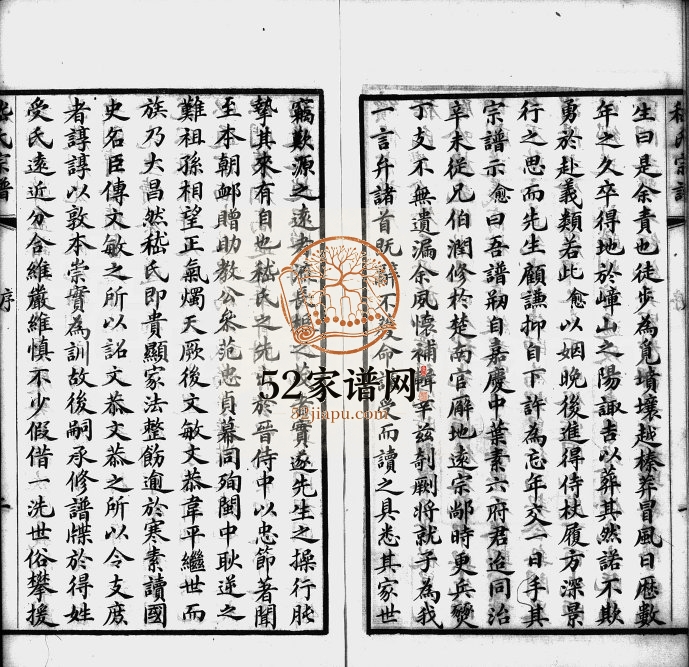 嵇氏宗譜
生曰是余責也徒步為覓墳壤越榛莽冒風日歷數
年之久卒得地於嶂山之陽諏吉以葬其然諾不欺
勇於赴義類若此愈以姻晚後進得侍杖履方深景
行之思而先生顧謙抑自下許為忘年交一日手其
宗譜示愈曰吾譜剏自嘉慶中葉素六府君迨同治
辛未從兄伯潤修於楚南官廨地遠宗鄰時更兵燹
丁支不無遺漏余夙懷補輯幸茲剞劂將就子為我
一言弁諸首既辭不獲命謹受而讀之具悉其家世
竊歎源之遠者流長之實遂先生之操行肫
摯其來有自也嵇氏之先世於晉侍中以忠節著聞
至本朝邺贈助教公參范忠貞幕同殉閩中耿逆之
難祖孫相望正氣燭天厥後文敏文恭韋平繼世而
族乃大昌然嵇氏即貴顯家法整飭逾於寒素讀國
史名臣傳文敏之所以詔文恭文恭之所以令支庶
者諄諄以敦本崇實為訓故後嗣承修譜牒於得姓
受氏遠近分合維嚴維慎不少假借一洗世俗攀援
嵇氏宗譜
序
52家谱网
52jiapu.com